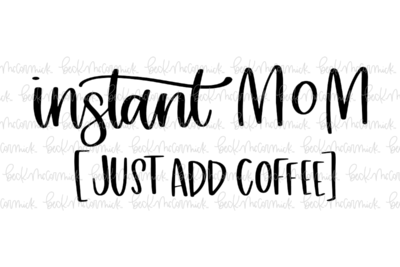 instant MOM
[JUST ADD COFFEE]